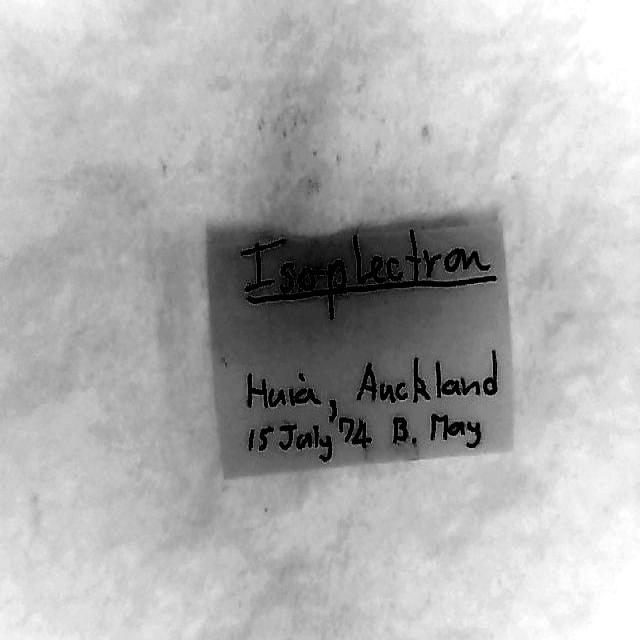 Isoplectron
Huia, Auckland
15 July '74 B. May